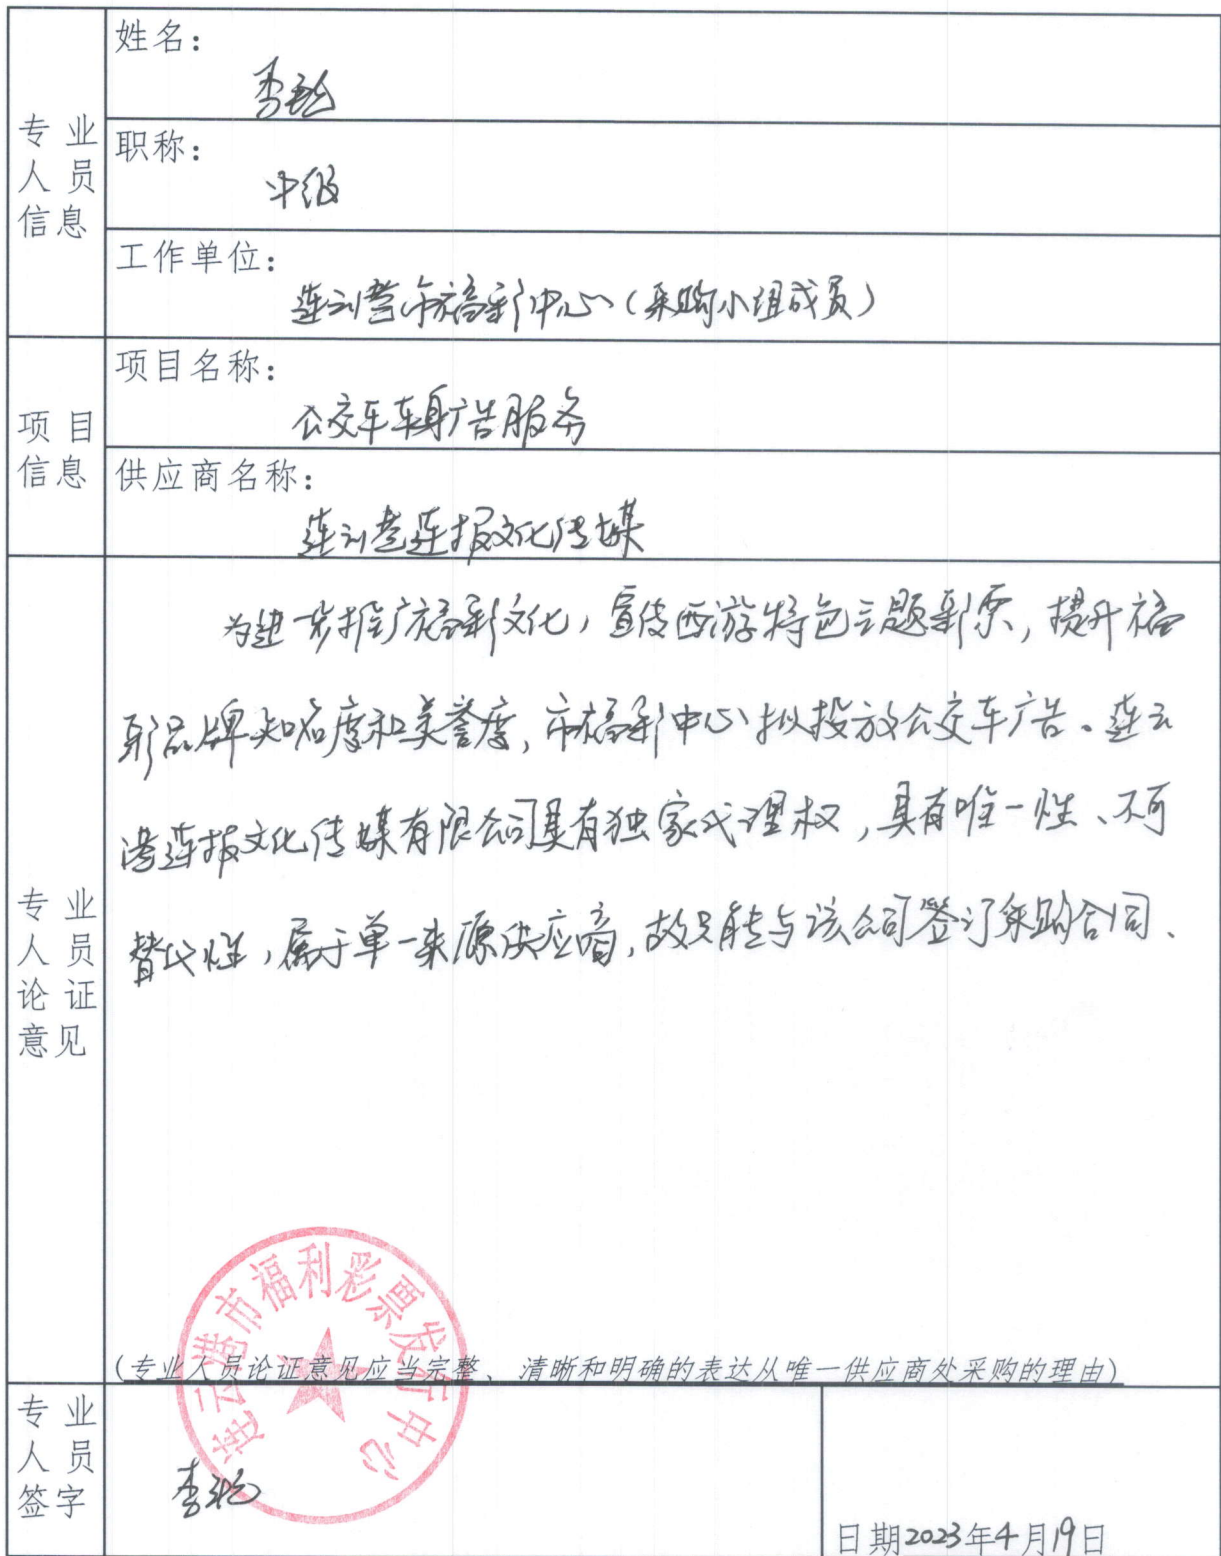 专业人员信息
姓名：
李
职称：
中级
工作单位：
连云港市福彩中心（采购小组成员）
项目信息
项目名称：
公交车车身广告服务
供应商名称：
连云港连报文化传媒
专业人员论证意见
为进一步推广福彩文化，宣传西游特色主题彩票，提升福
彩品牌知名度和美誉度，市福彩中心拟投放公交车广告。连云
港连报文化传媒有限公司具有独家代理权，具有唯一性、不可
替代性，属于单一来源供应商，故只能与该公司签订采购合同、
（专业人员论证意见应当完整、清晰和明确的表达从唯一供应商处采购的理由）
连云港市福利彩票发行中心
专业人员签字
李
日期2023年4月19日